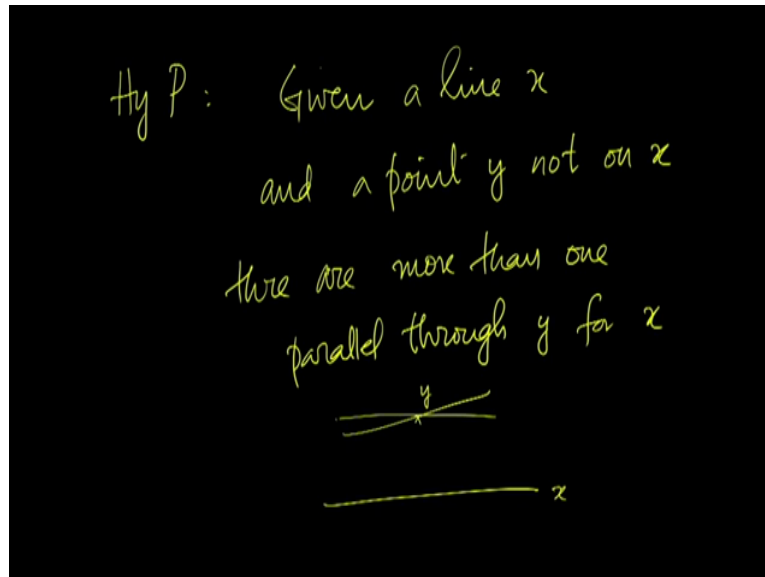 Hy P: Given a line x
and a point y not on x
thre are more than one
parallel through y for x
y
x